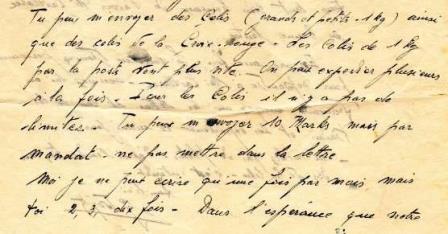 Tu peux m'envoyer des Colis (grands et petits - 1 kg) ainsi
que des colis de la Croix-Rouge - Les colis de 1 kg
par la poste vont plus vite - On peut expedier plusieurs
à la fois - Pour les Colis il n'y a pas de
limites - Tu peux m'envoyer 10 Marks mais par
mandat - ne pas mettre dans la lettre -
Moi je ne peux ecrire qu'une fois par mois mais
toi 2, 3, dix fois - Dans l'espérance que notre